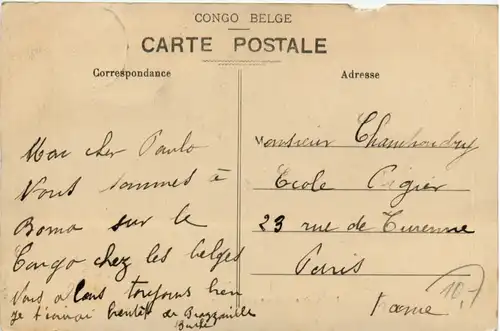 CONGO BELGE
CARTE POSTALE
Correspondance
Mon cher Paulo
Nous sommes à
Boma sur le
Congo chez les belges
Nous allons toujours bien
Je t'écrirai bientôt de Brazzaville
Adresse
Monsieur Chamhoudry
Ecole Pigier
23 rue de Turenne
Paris
France
10,-